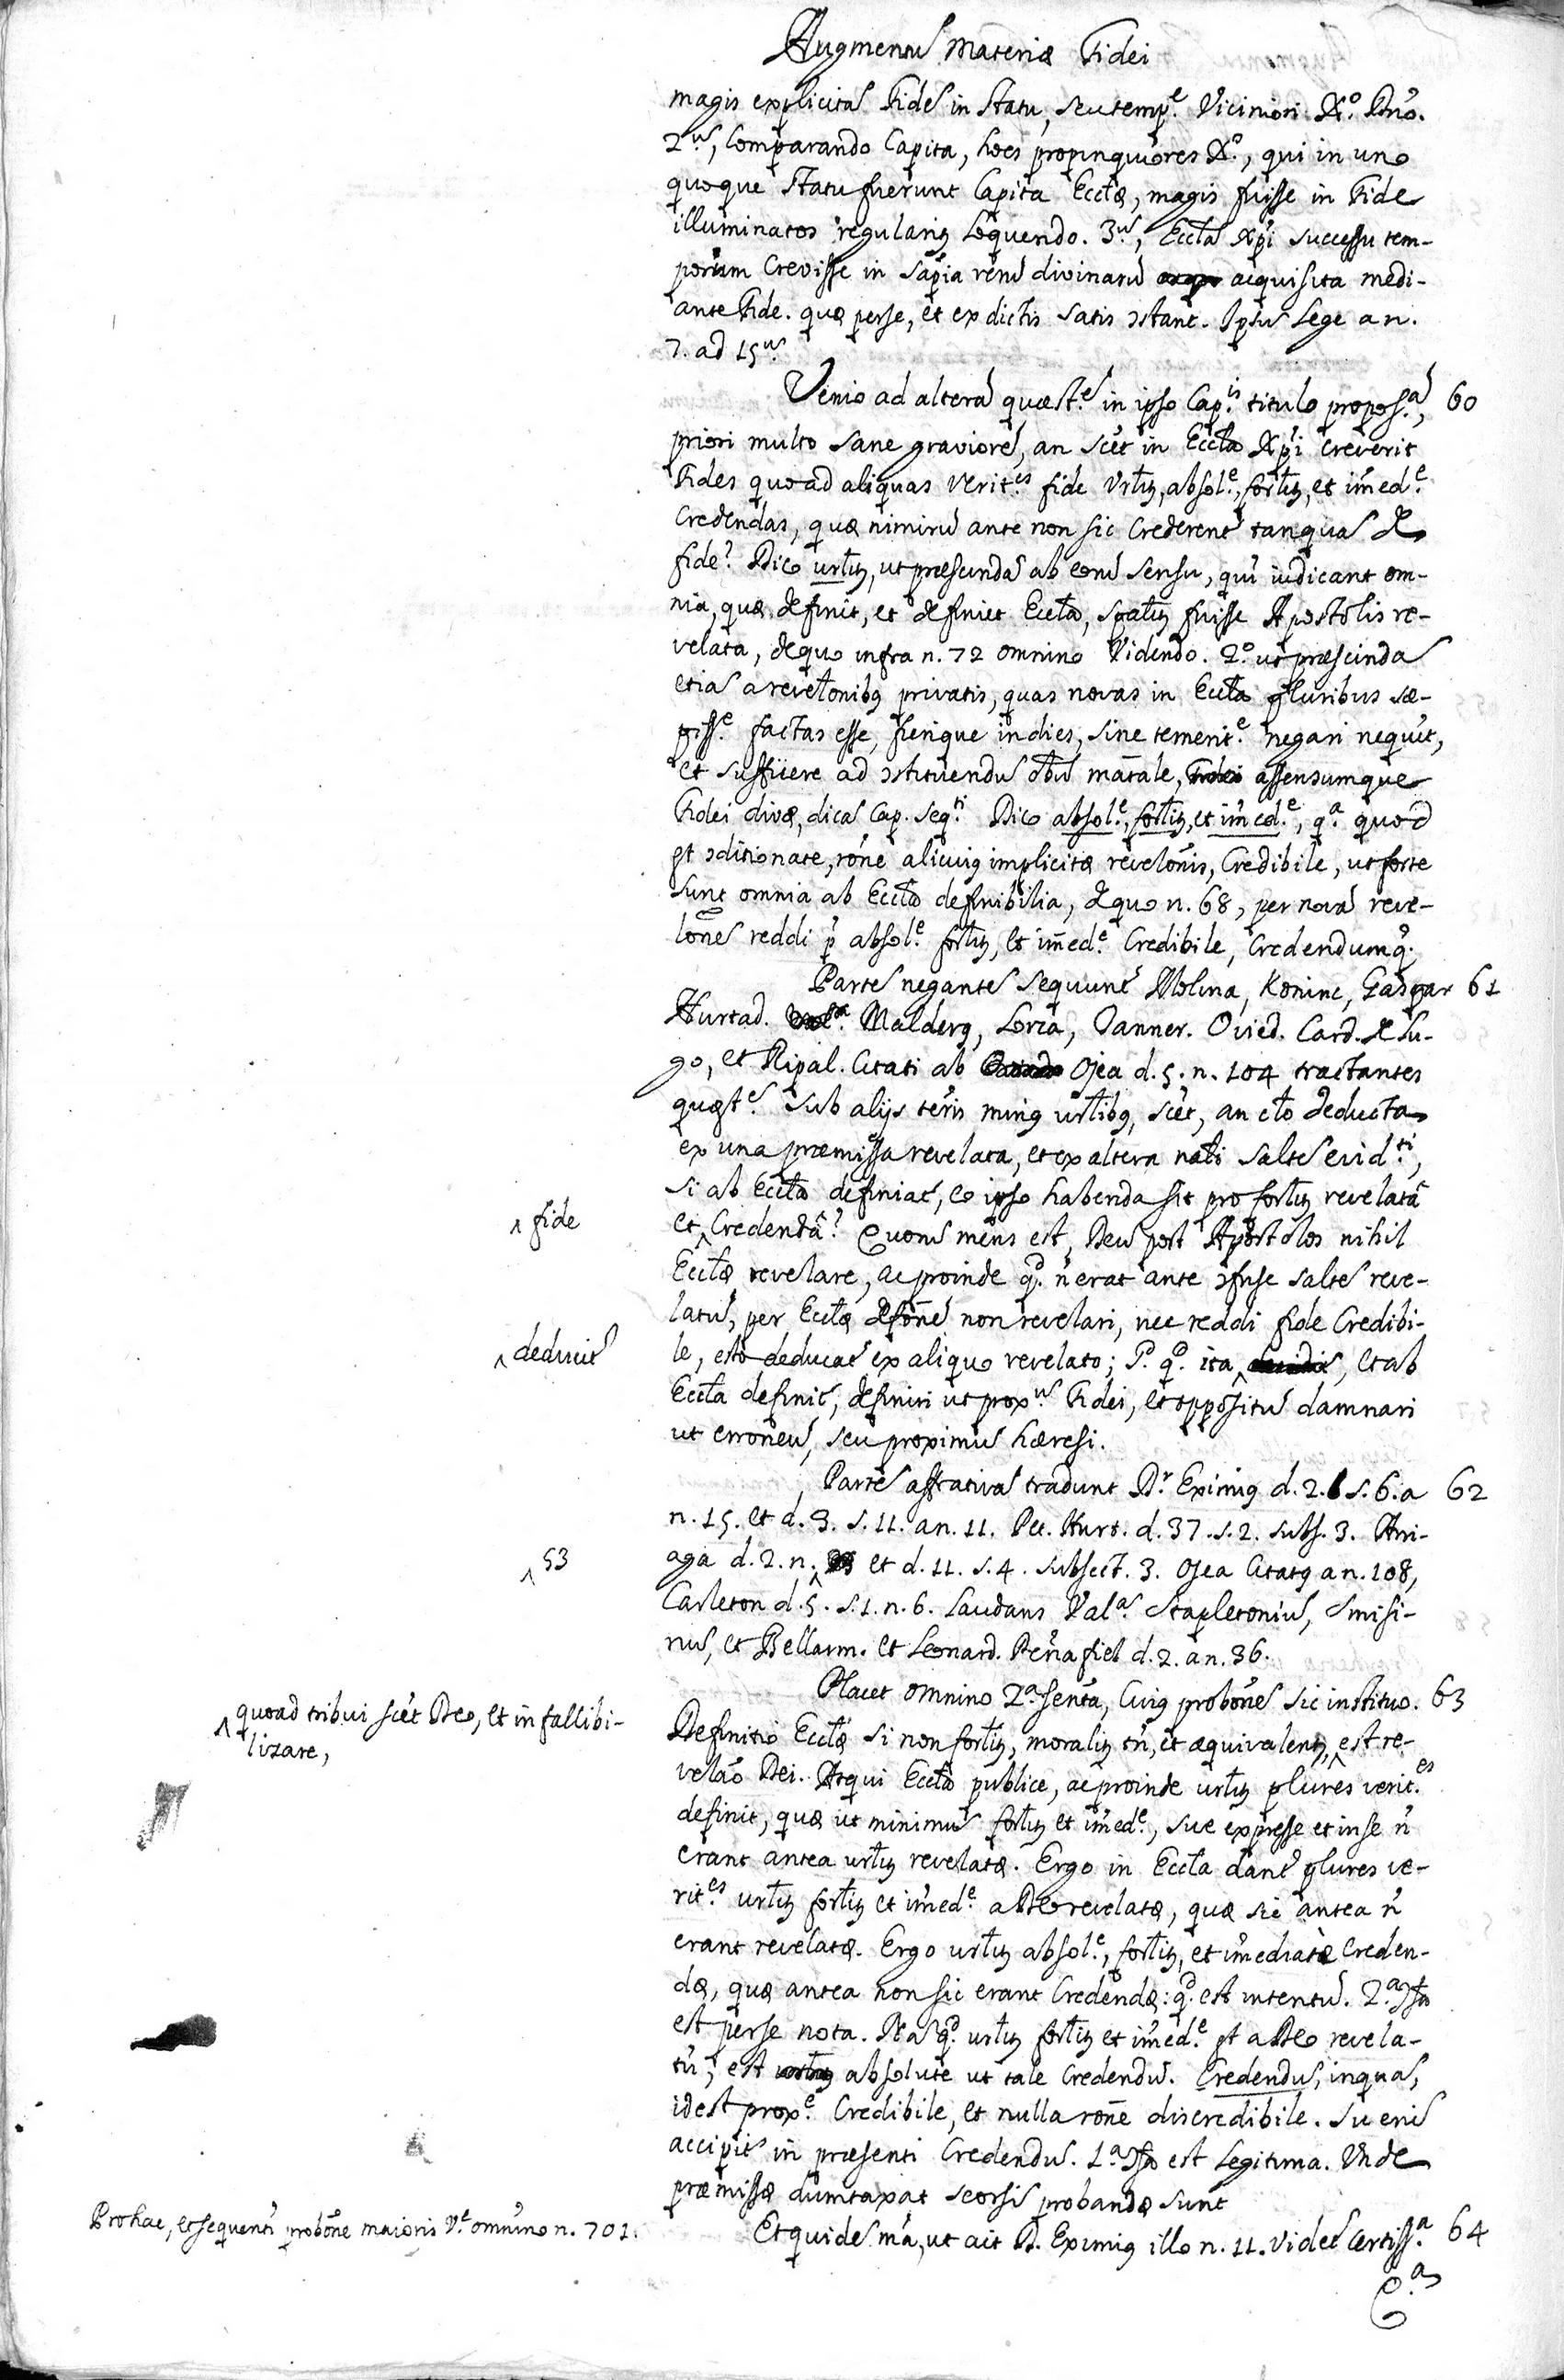 Augmentũ Materiæ Fidei
magis explicitã Fidẽ in Statu, seu temp.e Viciniori Xº. Dño.
2.ũ, Comparando Capita, hoes propinquiores Xº., qui in uno
quoque Statu fuerunt Capita Ecclæ, magis fuisse in Fide
illuminatos regularit̃ loquendo. 3.ũ, Eccla Xp̃i successu tem-
porum Crevisse in Sapia rerũ divinarũ acquisita medi-
ante Fide. quæ per se, et ex dictis satis ɔstant. Ipsũ lege a n.
7. ad 15.ũ
Venio ad alterã quæst.ẽ in ipso Cap.is titulo propos.ã, 60
priori multo sane graviorẽ, an scẽt in Eccla Xp̃i Creverit
Fides quoad aliquas Verit.es fide Vrl̃r, absol.e, forl̃r, et im̃ed.e
Credendas, quæ nimirũ ante non sic Crederent̃ tanquã de
fide? Dico url̃r, ut præscindã ab eorũ Sensu, qui iudicant om-
nia, quæ definit, et definiet Eccla, spãlr fuisse Apostolis re-
velata, de quo infra n. 72 omnino Videndo. 2.º ut præscindã
etiã a revel̃onibꝯ privatis, quas novas in Eccla pluribus sæ-
piss.e factas esse, fierique indies, sine temerit.e negari nequit,
et sufficere ad ɔstituendũ ob̃ũ mãtale, assensumque
Fidei divæ, dicã Cap. seq.ti Dico absol.e, forl̃r, et im̃ed.e, q.a quod
est ɔditionate, rõne alicuiꝯ implicitæ revelõnis, Credibile, ut forte
sunt omnia ab Eccla definibilia, de quo n. 68, per novã reve-
lõnẽ reddi p̃ absol.e forl̃r, et im̃ed.e Credibile, Credendumq̃.
Partẽ negantẽ sequunt̃ Molina, Koninc, Gaspar 61
Hurtad. Malderꝯ, Lorca, Tanner. Ovied. Card. de Lu-
go, et Ripal. Citati ab Ojea d. 5. n. 104 tractantes
quæst.ẽ sub alijs tẽris minꝯ url̃ibꝯ, scẽt, an clo deducta
ex una præmissa revelata, et ex altera nãli saltẽ evid.ti,
si ab Eccla definiat̃, eo ipso habenda sit pro forl̃r revelatâ
et ^ Credendâ? Quorũ mens est, Deũ post Apostolos nihil
^ fide
Ecclæ revelare, ac proinde q.d ñ erat ante ɔfuse saltẽ reve-
latũ, per Ecclæ defõnẽ non revelari, nec reddi fide Credibi-
le, esto deducat̃ ex aliquo revelato; S. q.d ita ^, et ab
^ deducit̃
Eccla definit̃, definiri ut prox.ũ Fidei, et oppositũ damnari
ut erroneũ, seu proximũ hæresi.
Partẽ affrativã tradunt D.r Eximiꝯ d. 2. s. 6. a 62
n. 15. et d. 3. s. 11. a n. 11. Pet. Hurt. d. 37. s. 2. subs. 3. Arri-
aga d. 2. n. ^ et d. 11. s. 4. subsect. 3. Ojea Citatꝯ a n. 108,
^ 53
Carleton d. 5. s. 1. n. 6. laudans Val.ã Stapletoniũ, Smisi-
nũ, et Bellarm. et Leonard. Peñafiel d. 2. a n. 36.
Placet omnino 2.a sentã, Cuiꝯ probõnẽ sic instituo. 63
Definitio Ecclæ si non forl̃r, moralit̃ tñ, et æquivalent̃, ^ est re-
^ quoad tribui scẽt Deo, et infallibi-
lizare,
velão Dei. Atqui Eccla publice, ac proinde url̃r plures verit.es
definit, quæ ut minimũ forl̃r et im̃ed.e, sive expresse et in se ñ
erant antea url̃r revelatæ. Ergo in Eccla dant̃ plures ve-
rit.es url̃r forl̃r et im̃ed.e a Deo revelatæ, quæ sic antea ñ
erant revelatæ. Ergo url̃r absol.e, forl̃r, et im̃ediatè Creden-
dæ, quæ antea non sic erant Credendæ: q.d est intentũ. 2.a ɔsa
est per se nota. Nã q.d url̃r forl̃r et im̃ed.e est a Deo revela-
tũ, est absolute ut tale Credendũ. Credendũ, inquã,
id est prox.e Credibile, et nulla rone discredibile. Sic enĩ
accipit̃ in præsenti Credendũ. 1.a ɔsa est legitima. Unde
præmissæ dumtaxat seorsĩ probandæ sunt
Pro hac, et sequenti probõne maioris V.e omnino n. 701.
Et quidẽ mã, ut ait D. Eximiꝯ illo n. 11. videt̃ Certiss.a 64
C.a